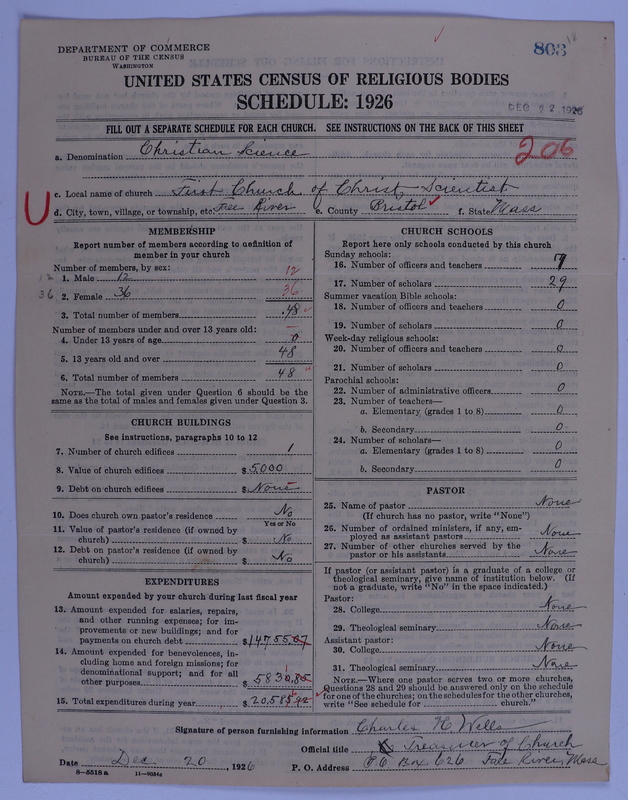 DEPARTMENT OF COMMERCE
BUREAU OF THE CENSUS
WASHINGTON
803
18
UNITED STATES CENSUS OF RELIGIOUS BODIES
SCHEDULE: 1926
DEC 22 1926
FILL OUT A SEPARATE SCHEDULE FOR EACH CHURCH. SEE INSTRUCTIONS ON THE BACK OF THIS SHEET
a. Denomination Christian Science 206
c. Local name of church First Church of Christ, Scientist
U d. City, town, village, or township, etc. Fall River e. County Bristol f. State Mass
MEMBERSHIP
Report number of members according to definition of
member in your church
Number of members, by sex:
12 1. Male 12 12
36 2. Female 36 36
3. Total number of members 48
Number of members under and over 13 years old:
4. Under 13 years of age 0
5. 13 years old and over 48
6. Total number of members 48
NOTE.—The total given under Question 6 should be
same as the total of males and females given under Question 3.
CHURCH BUILDINGS
See instructions, paragraphs 10 to 12
7. Number of church edifices 1
8. Value of church edifices $ 5000
9. Debt on church edifices $ None
10. Does church own pastor's residence No
Yes or No
11. Value of pastor's residence (if owned by
church) $ No
12. Debt on pastor's residence (if owned by
church) $ No
EXPENDITURES
Amount expended by your church during last fiscal year
13. Amount expended for salaries, repairs,
and other running expenses; for im-
provements or new buildings; and for
payments on church debt $ 14755.07
14. Amount expended for benevolences, in-
cluding home and foreign missions; for
denominational support; and for all
other purposes $ 5830.85
15. Total expenditures during year $ 20585.92
CHURCH SCHOOLS
Report here only schools conducted by this church
Sunday schools:
16. Number of officers and teachers 7
17. Number of scholars 29
Summer vacation Bible schools:
18. Number of officers and teachers 0
19. Number of scholars 0
Week-day religious schools:
20. Number of officers and teachers 0
21. Number of scholars 0
Parochial schools:
22. Number of administrative officers 0
23. Number of teachers—
a. Elementary (grades 1 to 8) 0
b. Secondary 0
24. Number of scholars—
a. Elementary (grades 1 to 8) 0
b. Secondary 0
PASTOR
25. Name of pastor None
(If church has no pastor, write "None")
26. Number of ordained ministers, if any, em-
ployed as assistant pastors None
27. Number of other churches served by the
pastor or his assistants None
If pastor (or assistant pastor) is a graduate of a college or
theological seminary, give name of institution below. (If
not a graduate, write "No" in the space indicated.)
Pastor:
28. College None
29. Theological seminary None
Assistant pastor:
30. College None
31. Theological seminary None
NOTE.—Where one pastor serves two or more churches,
Questions 28 and 29 should be answered only on the schedule
for one of the churches; on the schedules for the other churches,
write "See schedule for church."
Signature of person furnishing information Charles H Wells
Official title Treasurer of Church
Date Dec 20, 1926 P. O. Address P.O Box 626 Fall River, Mass
8—5518 a 11—9034a